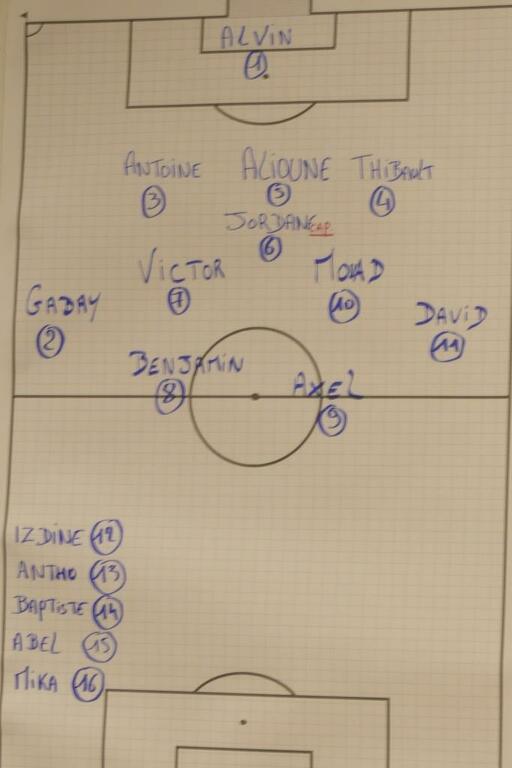 ALVIN
1
ANTOINE ALIOUNE THIBAULT
3 5 4
JORDANE CAP
6
VICTOR MOUAD
7 10
GADAY DAVID
2 11
BENJAMIN AXEL
8 9
IZDINE 12
ANTHO 13
BAPTISTE 14
ABEL 15
MIKA 16